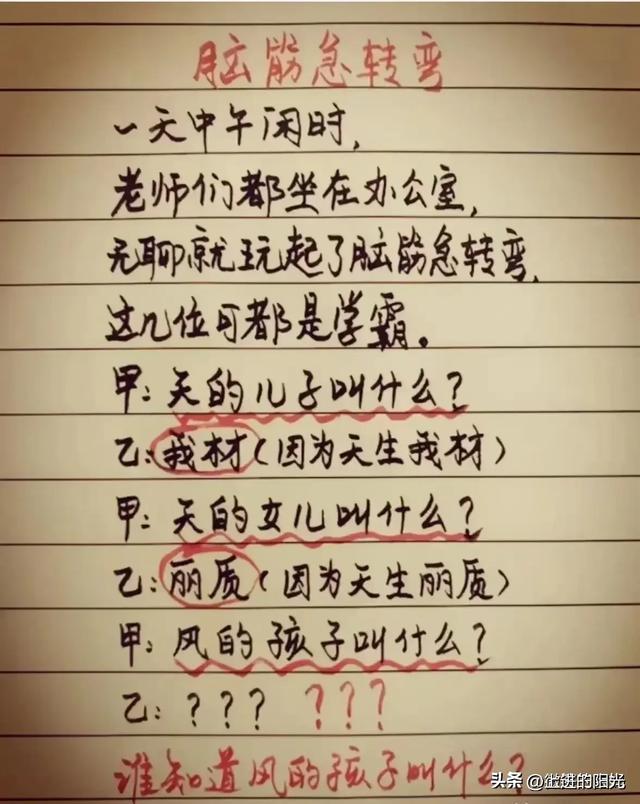 脑筋急转弯
一天中午闲时,
老师们都坐在办公室,
无聊就玩起了脑筋急转弯,
这几位可都是学霸。
甲:天的儿子叫什么?
乙:我材(因为天生我材)
甲:天的女儿叫什么?
乙:丽质(因为天生丽质)
甲:风的孩子叫什么?
乙:??? ???
谁知道风的孩子叫什么?
头条 @上进的阳光